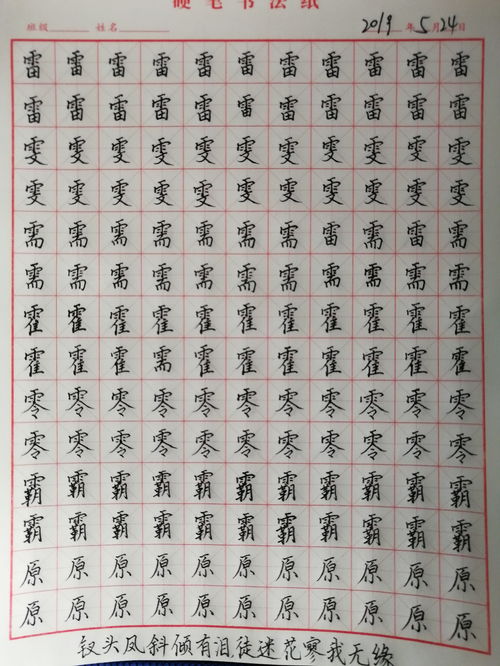 硬笔书法纸
班级 姓名 2019年5月24日
雷雷雷雷雷雷雷雷雷雷雷
雷雷雷雷雷雷雷雷雷雷雷
雯雯雯雯雯雯雯雯雯雯雯
雯雯雯雯雯雯雯雯雯雯雯
需需需需需需需雷需雷需
需需需需需需需需需需需
霍霍霍霍霍霍霍霍霍霍霍
霍霍霍需霍霍霍霍霍霍霍
零零零零零零零零零零零
零零零零零零零零零零零
霸霸霸霸霸霸霸霸霸霸霸
霸霸霸霸霸霸霸霸霸霸霸
原原原原原原原原原原原
原原原原原原原原原原原
钗头凤斜倾有泪徒迷花寥我无缘